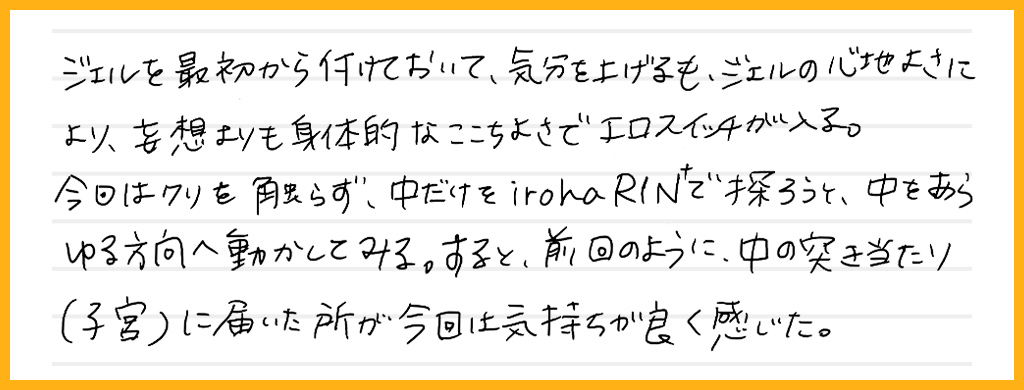 ジェルを最初から付けておいて、気分を上げるも、ジェルの心地よさに
より、妄想よりも身体的なここちよさでエロスイッチが入る。
今回はクリを触らず、中だけをiroha RIN+で探ろうと、中をあら
ゆる方向へ動かしてみる。すると、前回のように、中の突き当たり
(子宮)に届いた所が今回は気持ちが良く感じた。